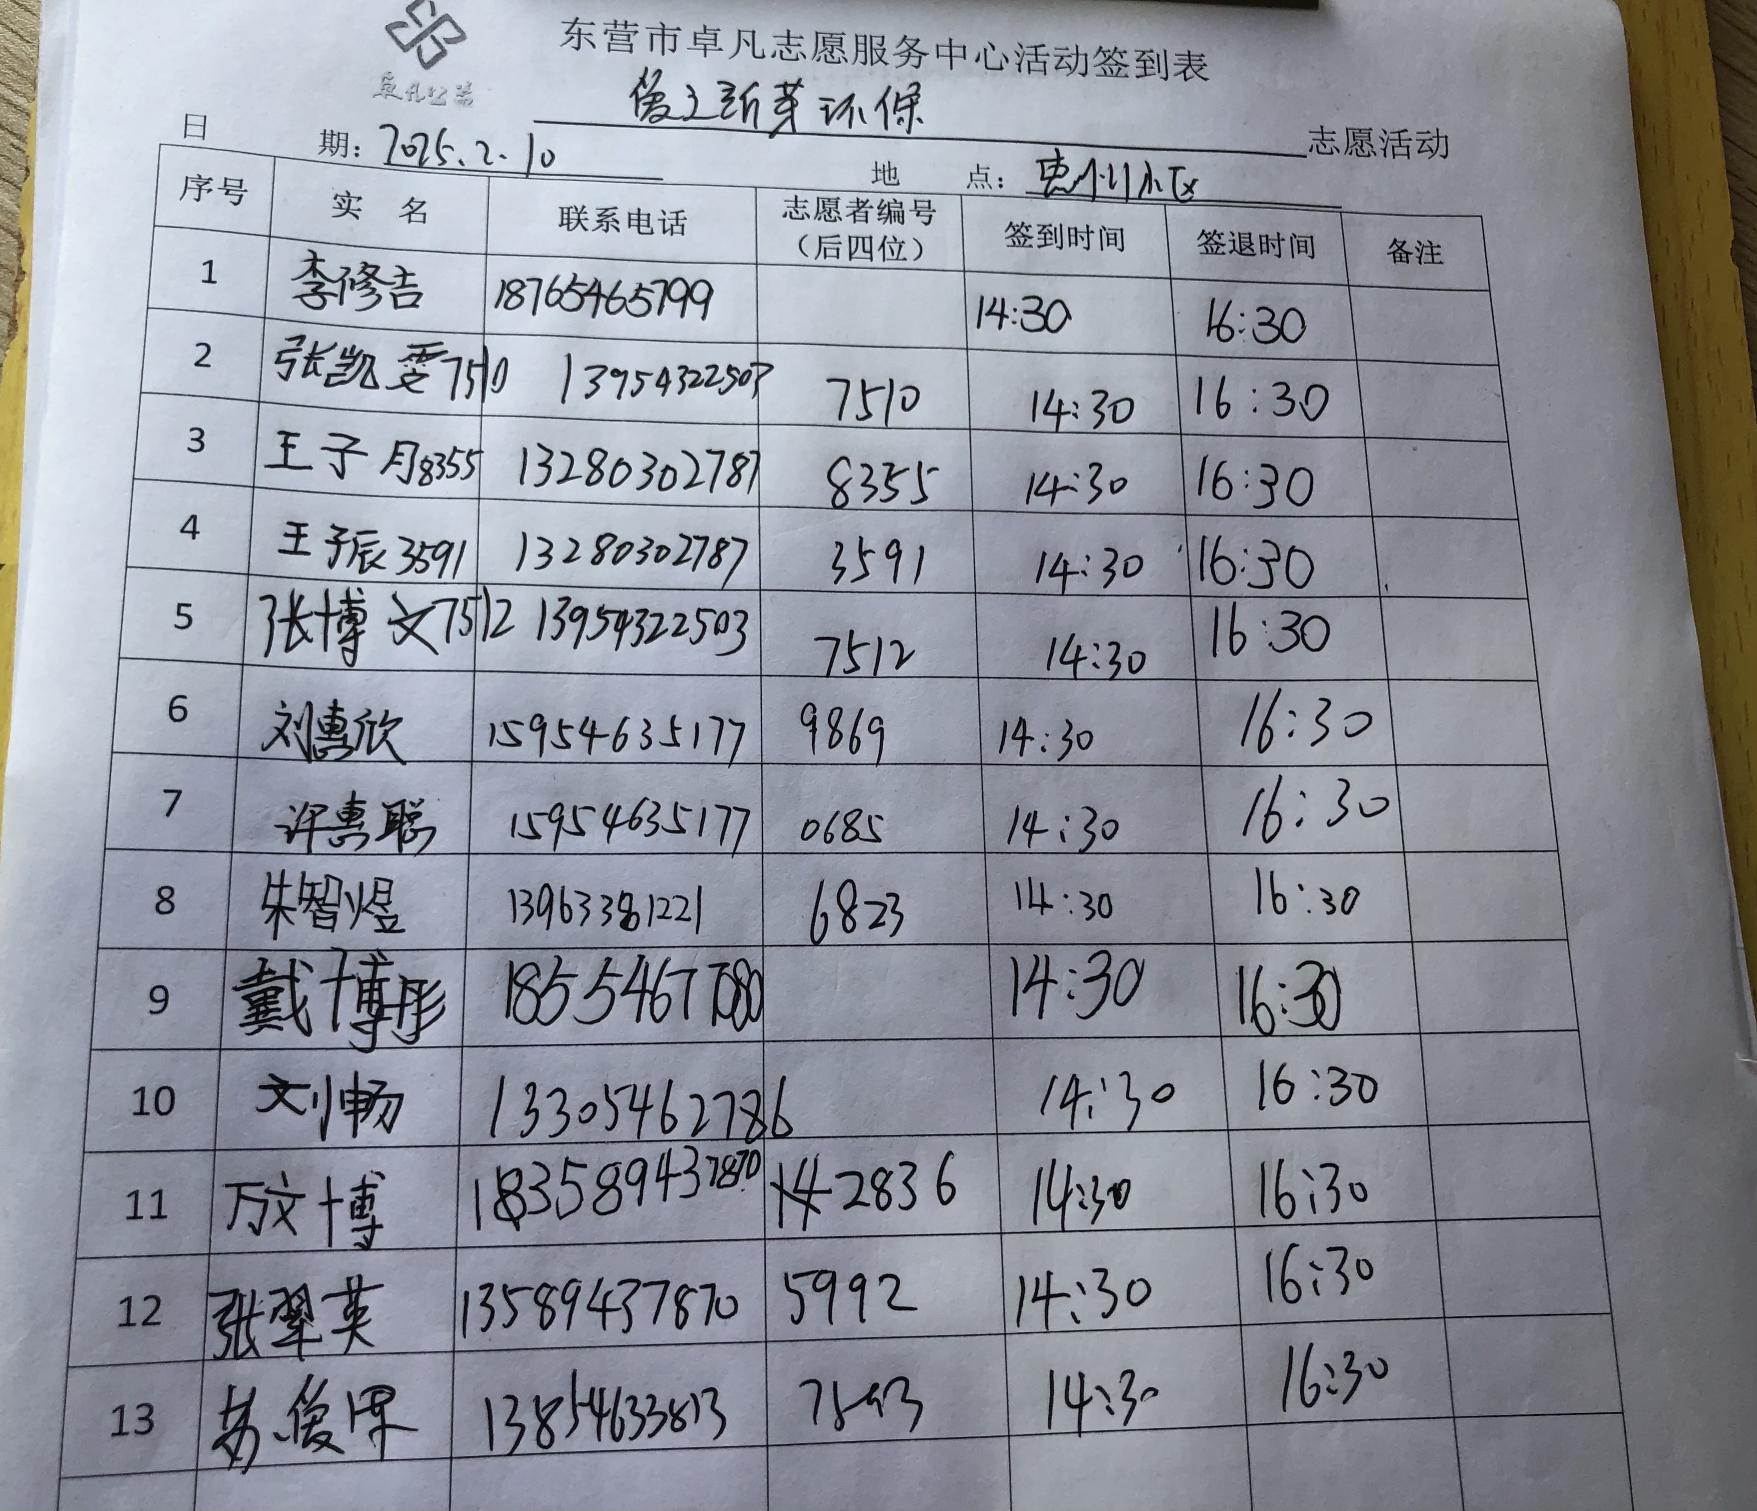 卓凡公益
东营市卓凡志愿服务中心活动签到表
新芽环保 志愿活动
日 期: 2025.2.10 地 点: 惠州小区
序号 实 名 联系电话 志愿者编号（后四位） 签到时间 签退时间 备注
1 李修吉 18765465799 14:30 16:30
2 张凯雯7510 13954322503 7510 14:30 16:30
3 王子月8355 13280302787 8355 14:30 16:30
4 王子辰3591 13280302787 3591 14:30 16:30
5 张博文7512 13954322503 7512 14:30 16:30
6 刘惠欣 15954635177 9869 14:30 16:30
7 许惠聪 15954635177 0685 14:30 16:30
8 朱智煜 13963381221 6823 14:30 16:30
9 戴博彤 14:30 16:30
10 刘畅 13305462786 14:30 16:30
11 万文博 2836 14:30 16:30
12 张翠英 13589437870 5992 14:30 16:30
13 苏俊 13854633813 14:30 16:30